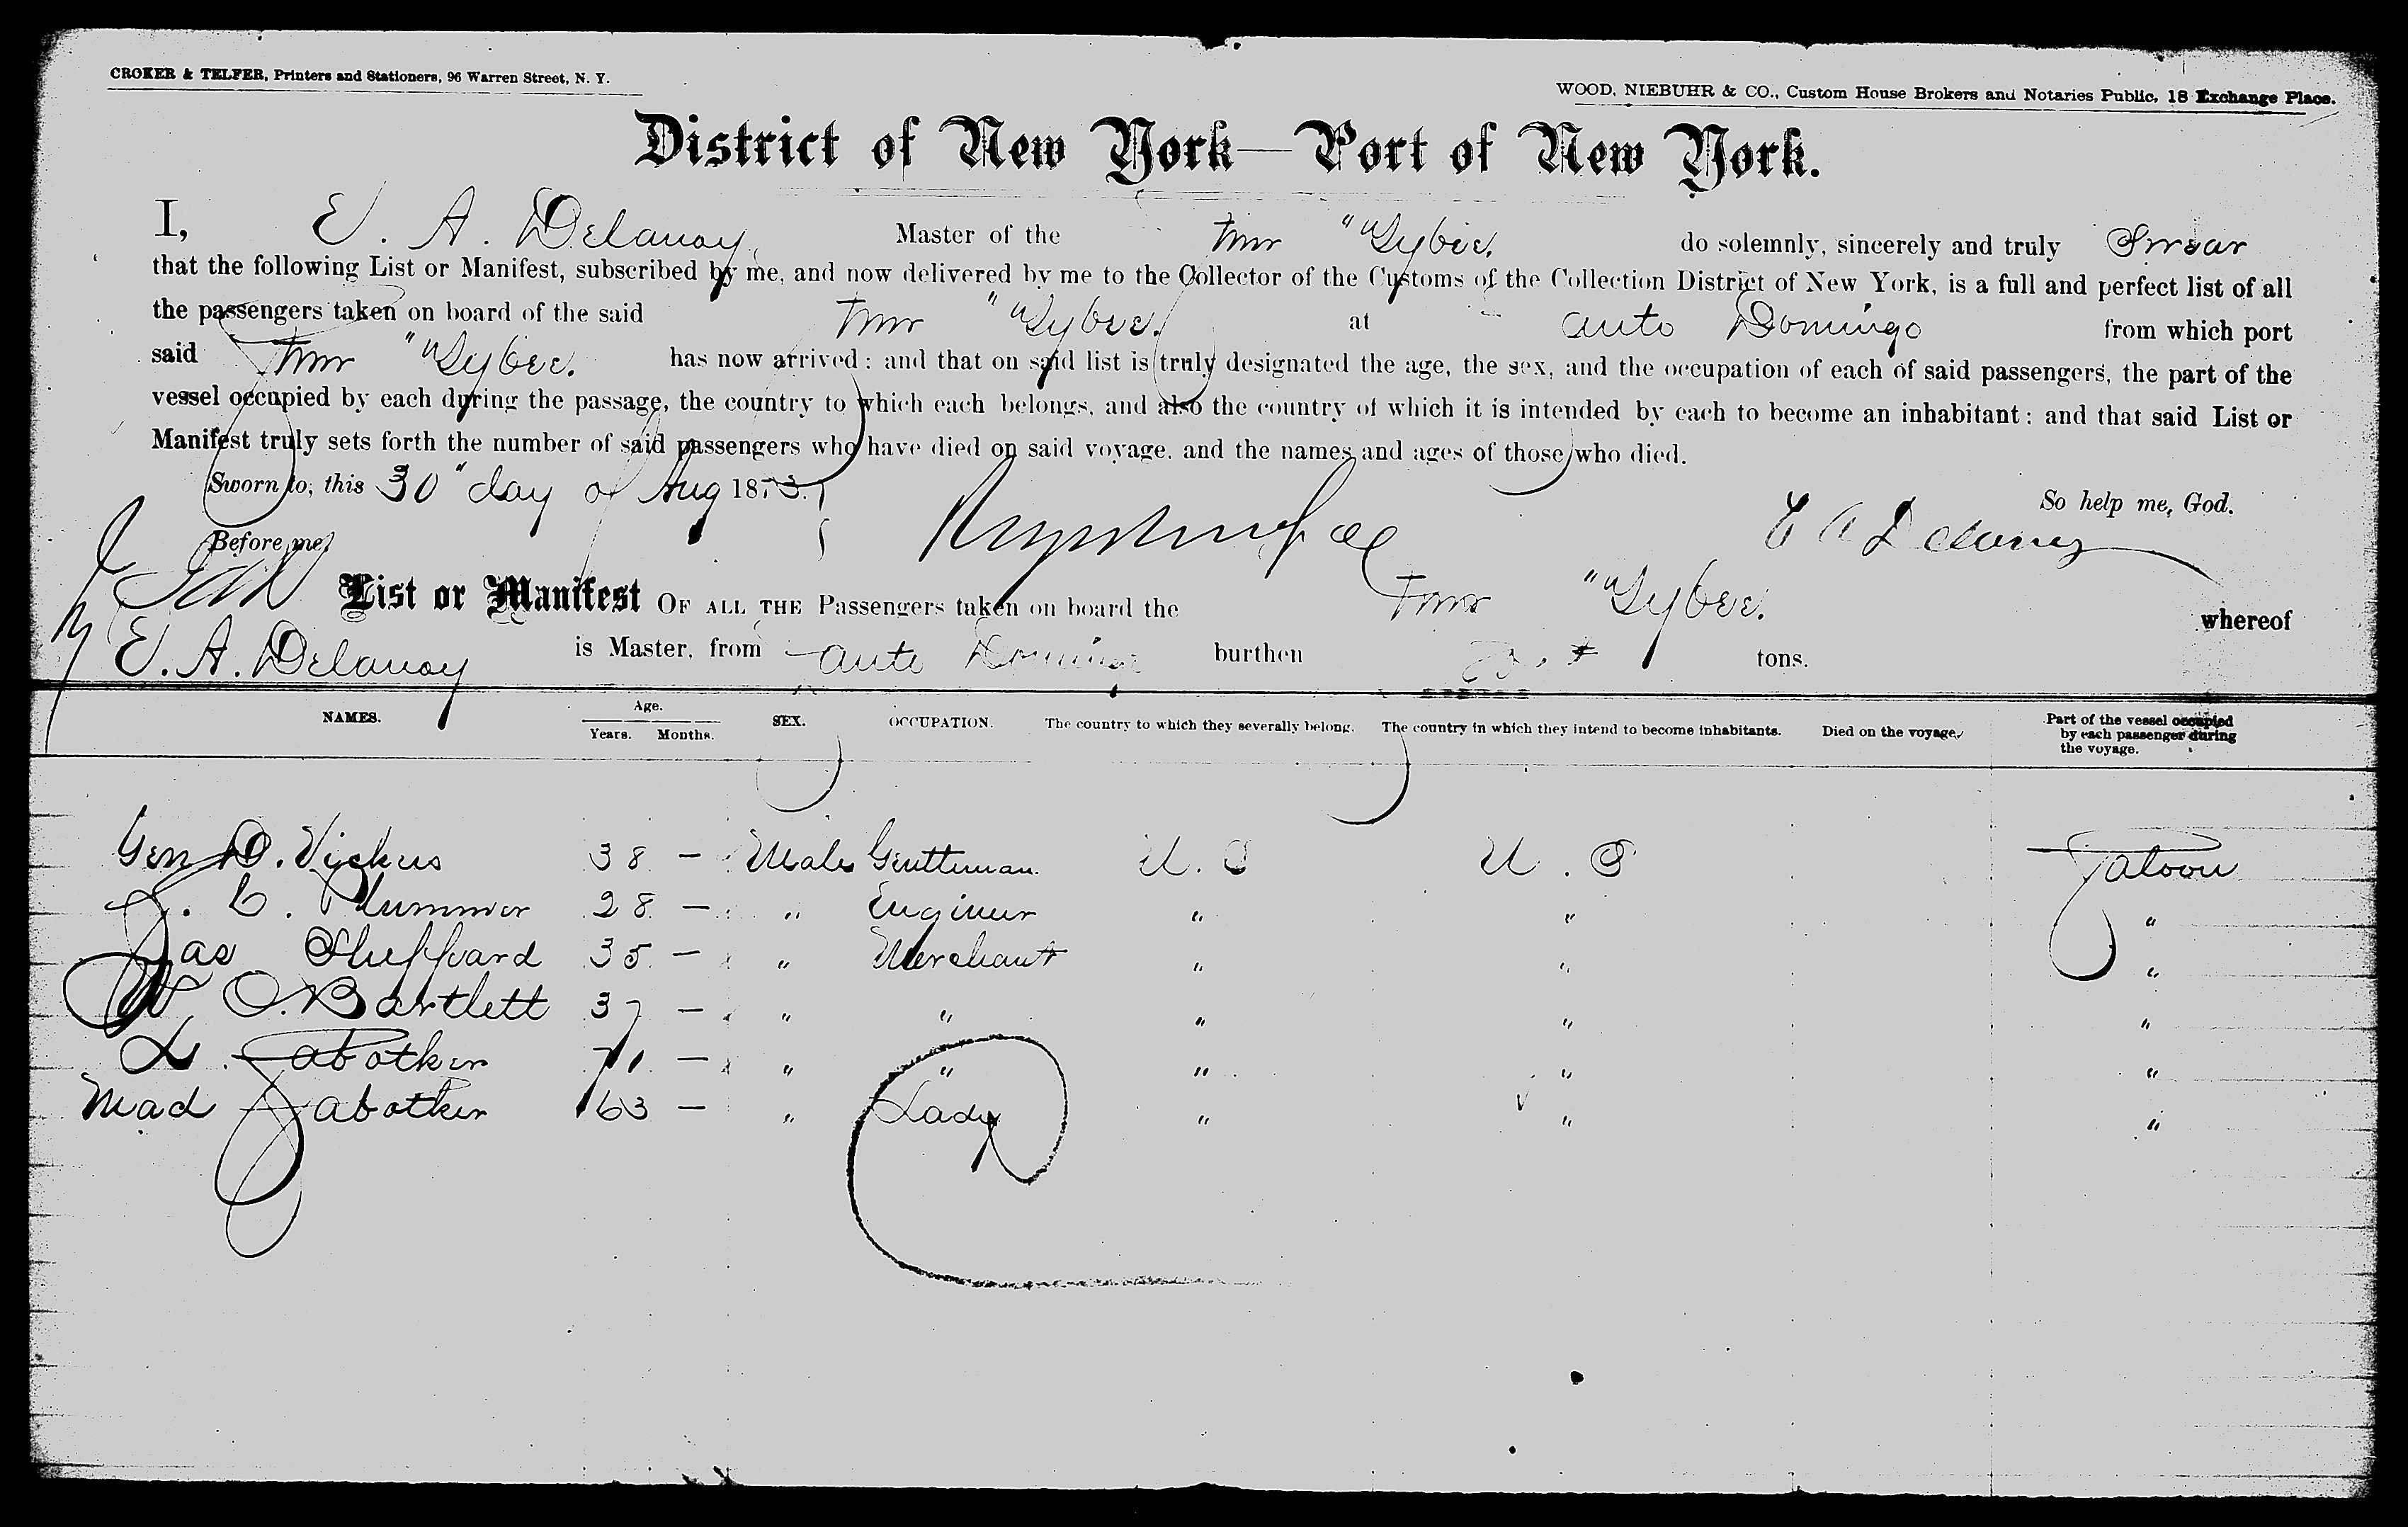 CROKER & TELFER, Printers and Stationers, 96 Warren Street, N. Y.
WOOD, NIEBUHR & CO., Custom House Brokers and Notaries Public, 18 Exchange Place.
District of New York—Port of New York.
I, E. A. Delanoy, Master of the "Tybee. do solemnly, sincerely and truly Swear
that the following List or Manifest, subscribed by me, and now delivered by me to the Collector of the Customs of the Collection District of New York, is a full and perfect list of all
the passengers taken on board of the said "Tybee. at Domingo from which port
said "Tybee. has now arrived: and that on said list is truly designated the age, the sex, and the occupation of each of said passengers, the part of the
vessel occupied by each during the passage, the country to which each belongs, and also the country of which it is intended by each to become an inhabitant: and that said List or
Manifest truly sets forth the number of said passengers who have died on said voyage, and the names and ages of those who died.
Sworn to, this 30" day of Aug 1873. So help me, God.
Before me, E A Delanoy
List or Manifest OF ALL THE Passengers taken on board the "Tybee. whereof
E. A. Delanoy is Master, from burthen tons.
NAMES. Age. Years. Months. SEX. OCCUPATION. The country to which they severally belong. The country in which they intend to become inhabitants. Died on the voyage. Part of the vessel occupied by each passenger during the voyage.
Gen D. Vickers 38 — Male Gentleman. U. S U. S Saloon
J. C. Plummer 28 — " Engineer " " "
Jas Sheppard 35 — " Merchant " " "
W O. Bartlett 37 — " " " " "
L. 71 — " " " " "
Mad 63 — " Lady " " "